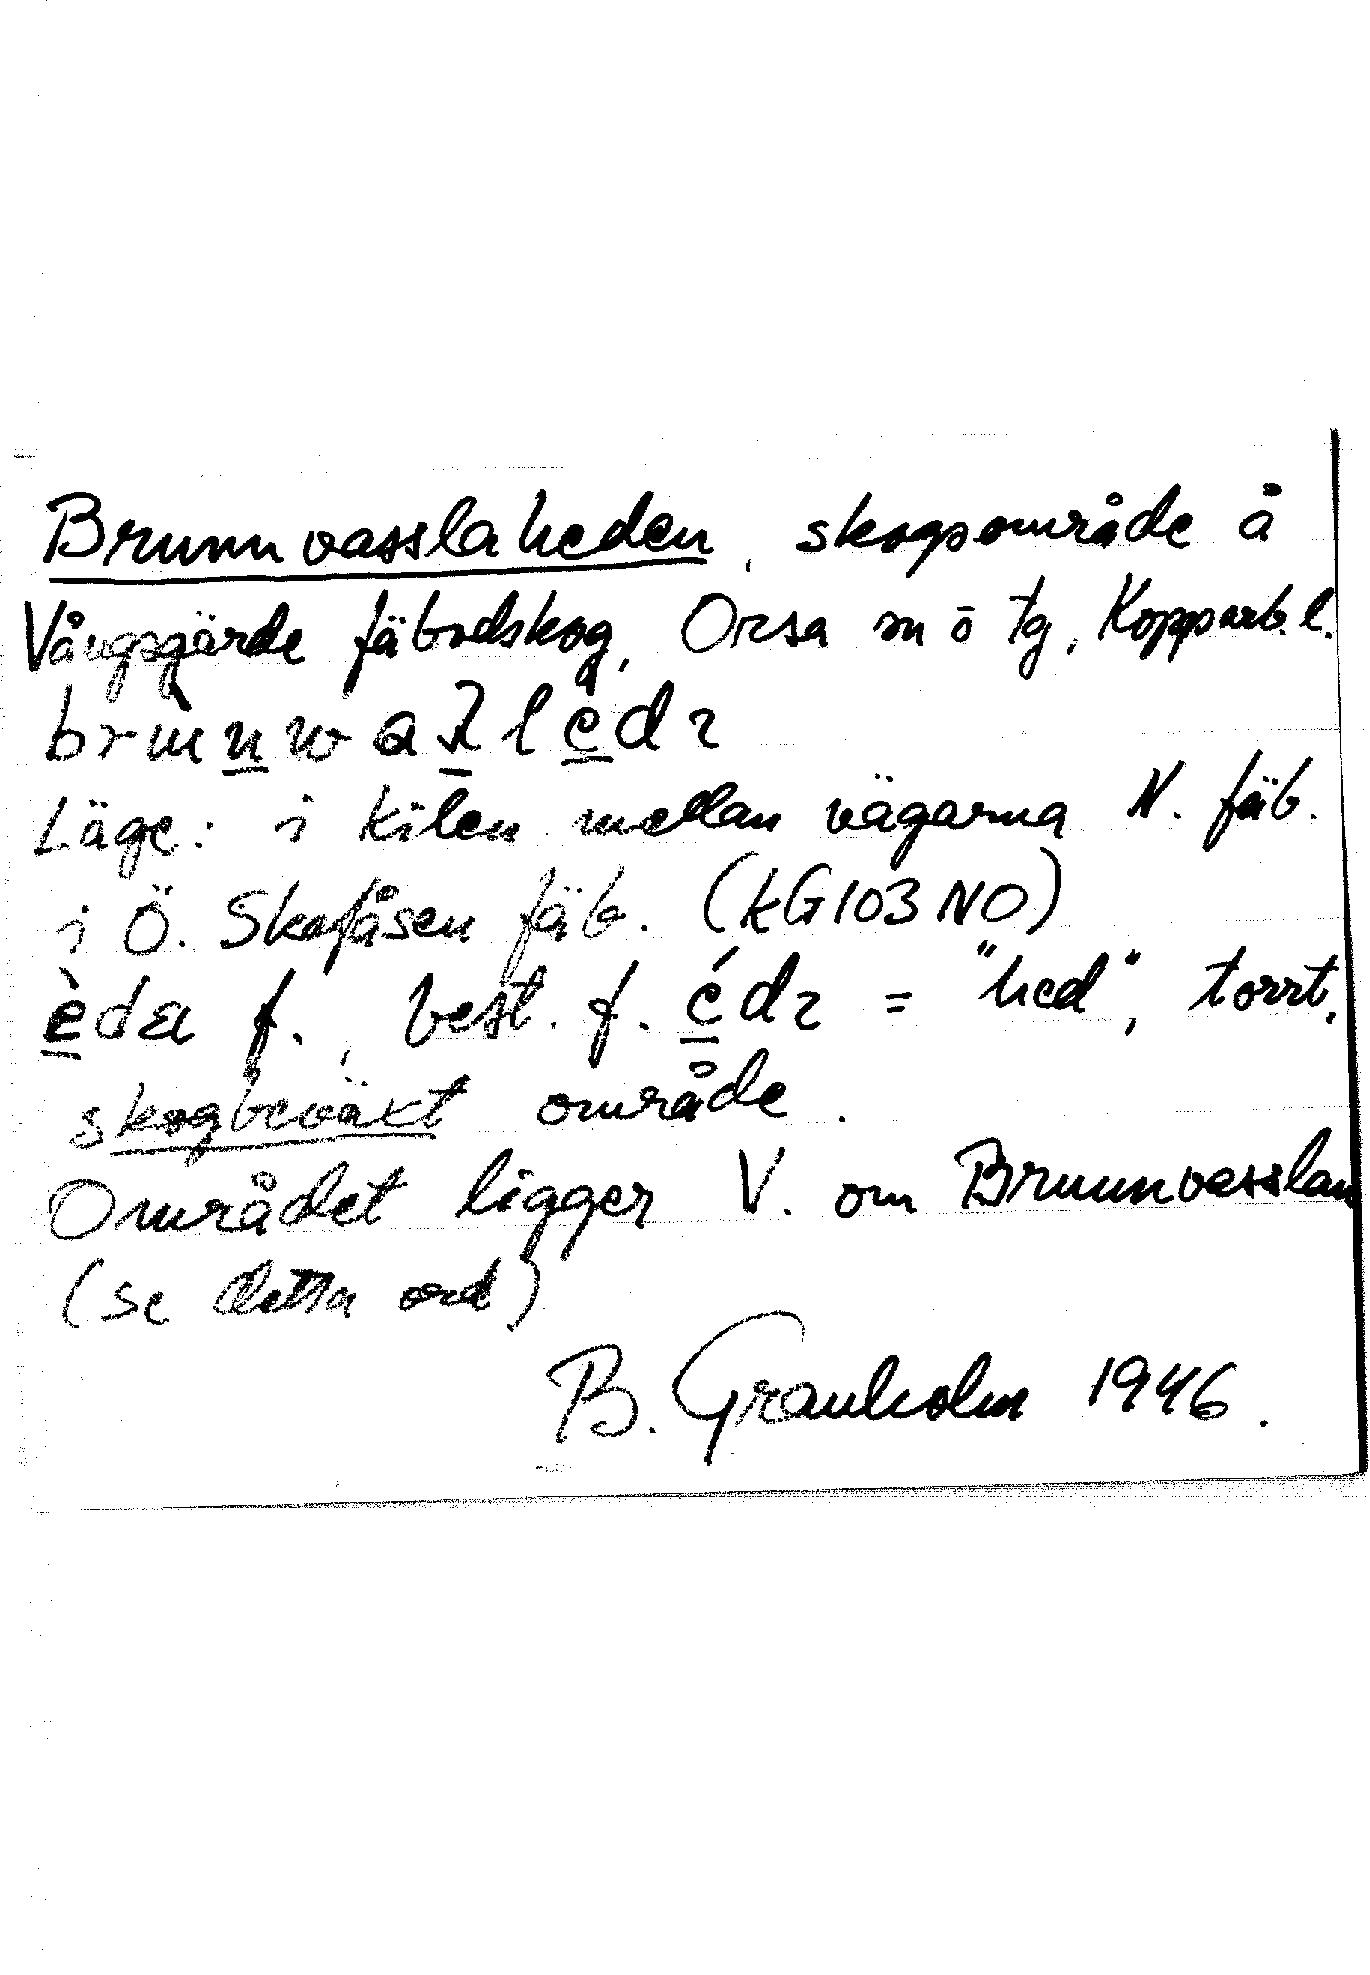 Brunnvasslaheden, skogsområde å
Vångsgärde fäbodskog, Orsa sn o tg, Kopparb. l.
Läge: i kilen mellan vägarna N. fäb.
i Ö. Skefåsen fäb. (kG103NO)
f., best. f. = "hed", torrt,
skogbeväxt område.
Området ligger V. om Brunnvasslan
(se detta ord)
B. Granholm 1946.